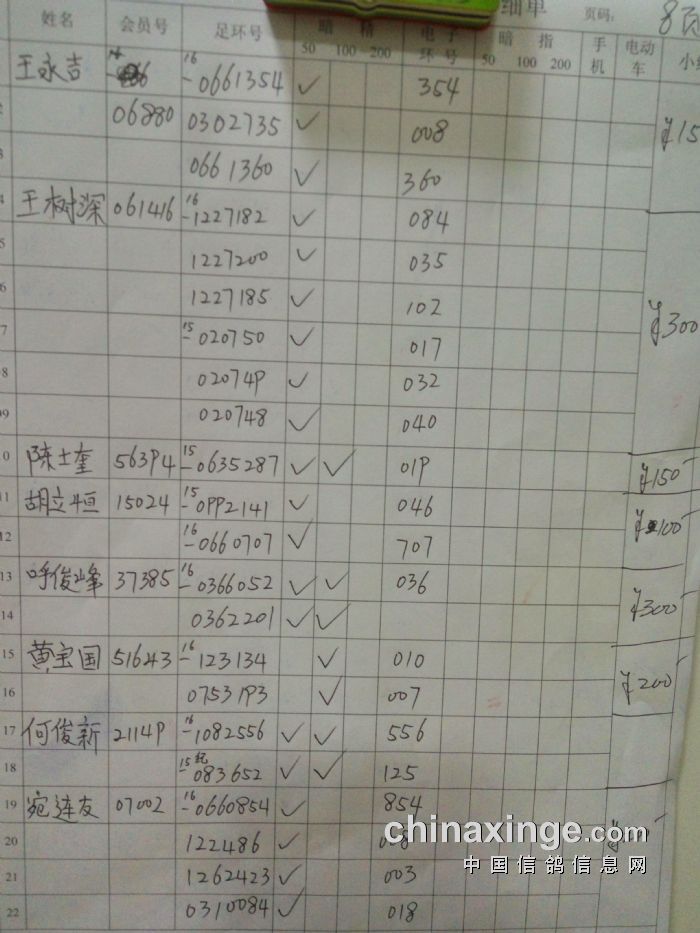 细单 页码: 8页
姓名 会员号 足环号 暗 精 电子环号 暗 指 手机 电动车 小
50 100 200 50 100 200
王永吉 16-0661354 ✓ 354
06880 0302735 ✓ 008 ¥15
0661360 ✓ 360
王树深 061416 16-1227182 ✓ 084
1227200 ✓ 035
1227185 ✓ 102
7 15-020750 ✓ 017 ¥300
8 020749 ✓ 032
09 020748 ✓ 040
0 陈士奎 56394 15-0635287 ✓ ✓ 019 ¥150
11 胡立恒 15024 15-0992141 ✓ 046
12 16-0660707 ✓ 707 ¥100
13 呼俊峰 37385 16-0366052 ✓ ✓ 036
14 0362201 ✓ ✓ ¥300
15 黄宝国 516243 16-123134 ✓ 010
16 0753193 ✓ 007 ¥200
17 何俊新 21149 16-1082556 ✓ ✓ 556
18 15-083652 ✓ ✓ 125
19 宛连友 07002 16-0660854 ✓ 854
20 122486 ✓
21 1262423 ✓ 003
22 0310084 ✓ 018
chinaxinge.com
中国信鸽信息网